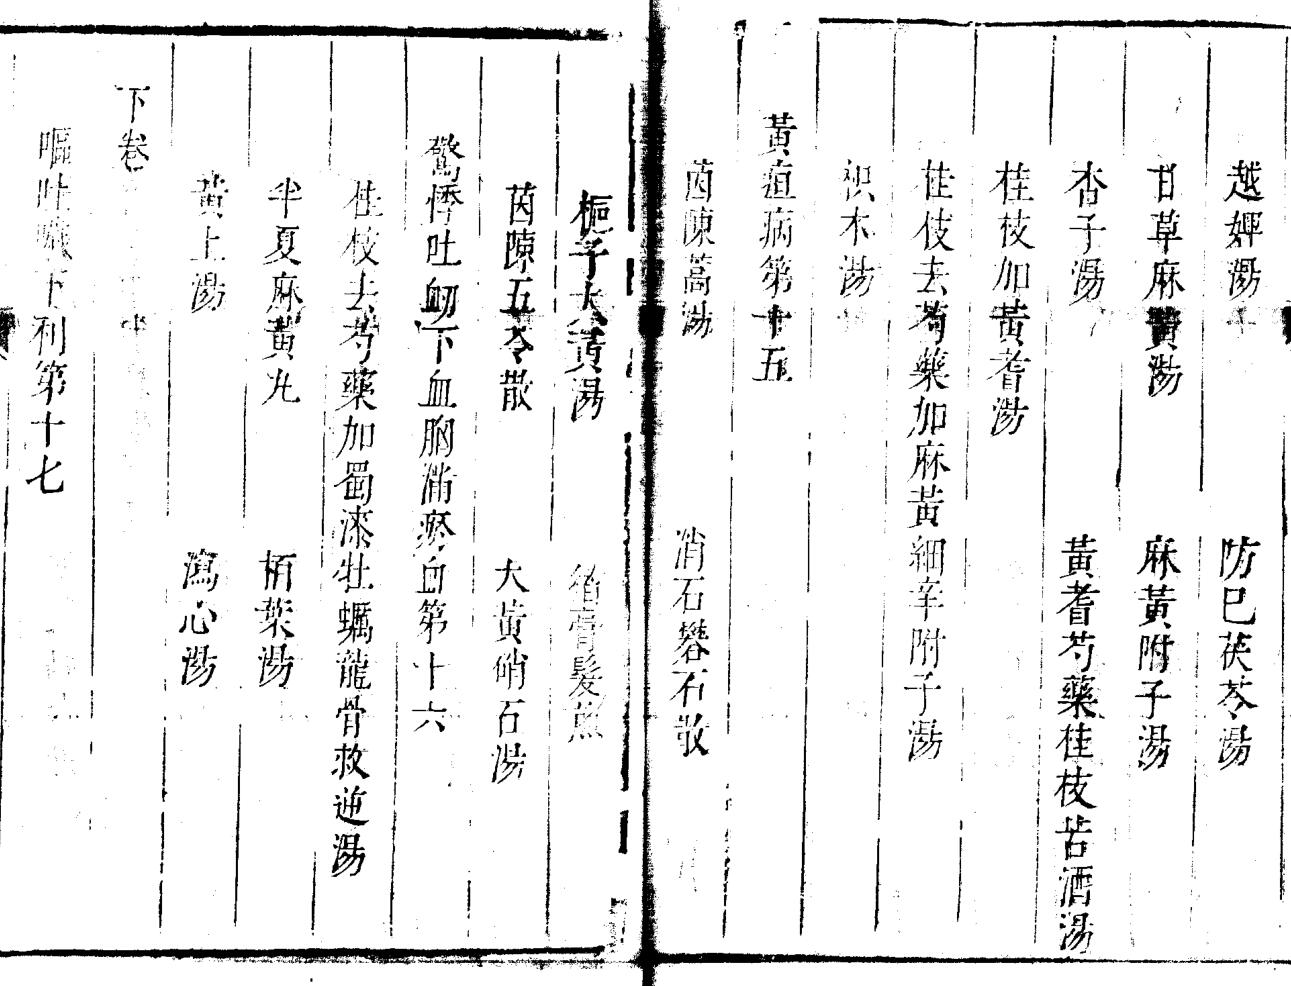 越婢湯　防已茯苓湯
甘草麻黃湯　麻黃附子湯
杏子湯　黃耆芍藥桂枝苦酒湯
桂枝加黃耆湯
桂枝去芍藥加麻黃細辛附子湯
枳朮湯
黃疸病第十五
茵陳蒿湯　消石礬石散
梔子大黃湯　猪膏髮煎
茵陳五苓散　大黃硝石湯
驚悸吐衂下血胸滿瘀血第十六
桂枝去芍藥加蜀漆牡蠣龍骨救逆湯
半夏麻黃丸　栢葉湯
黃土湯　瀉心湯
下卷
嘔吐噦下利第十七